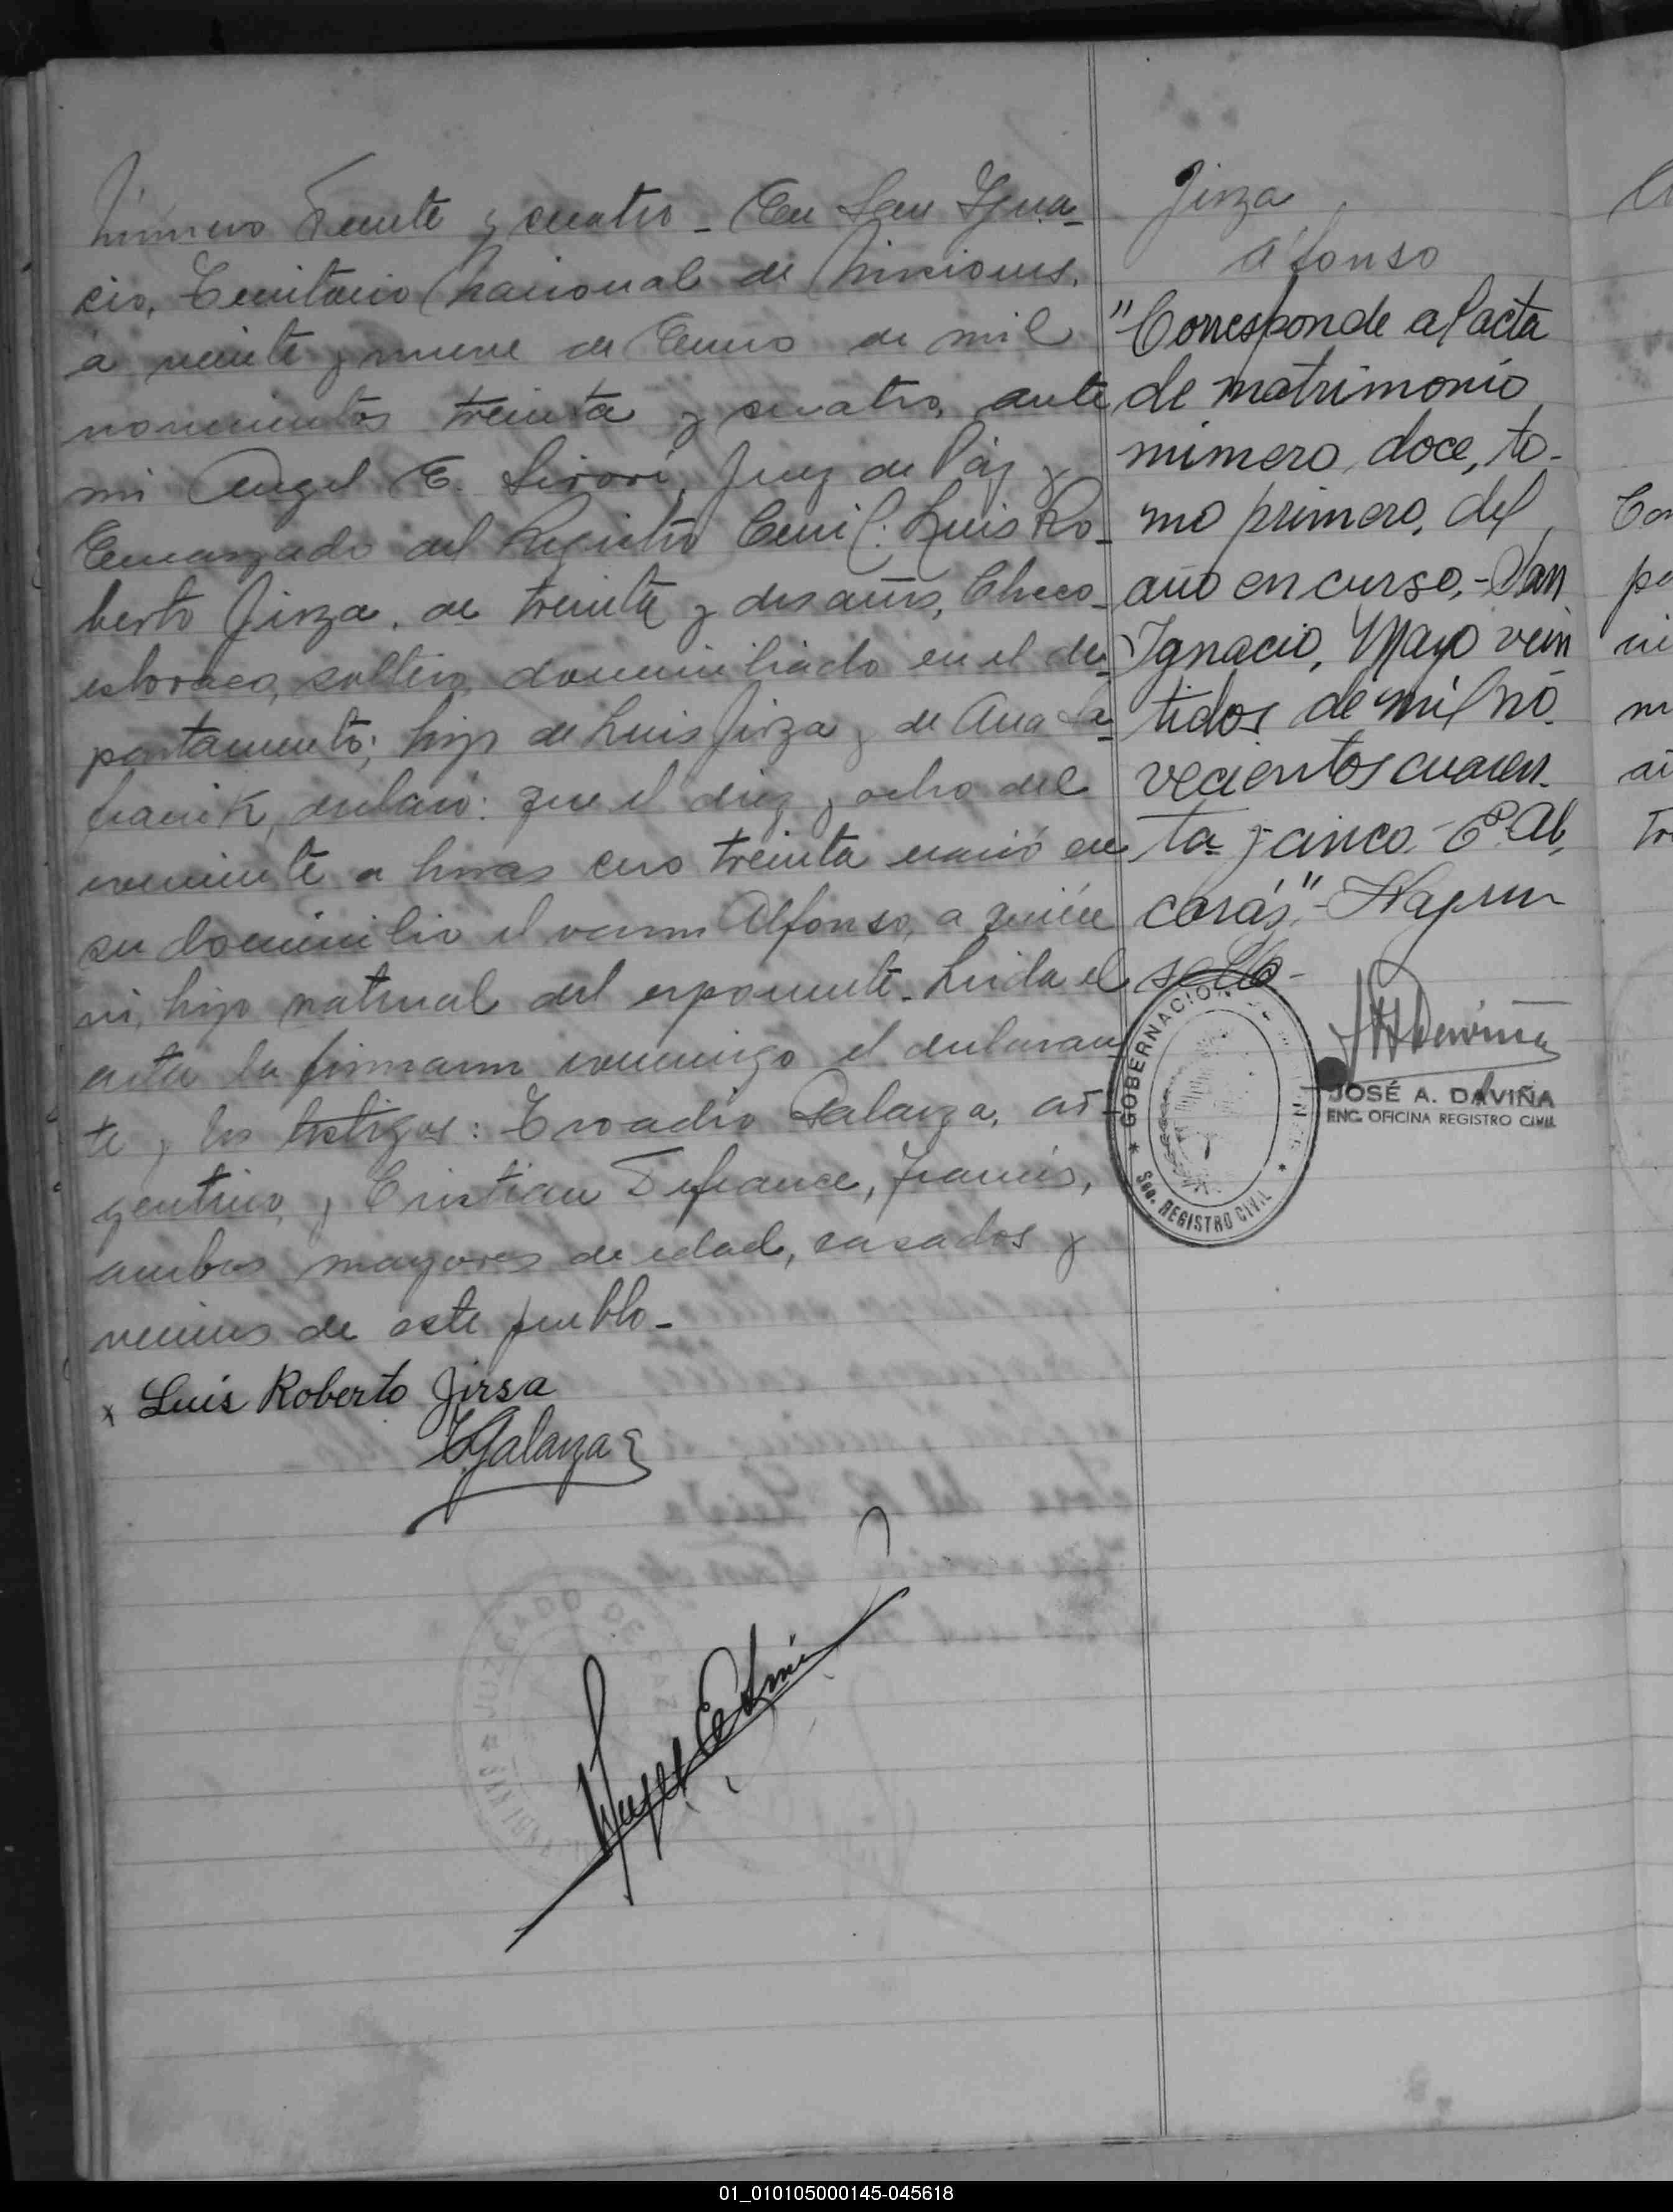 Número Treinta y cuatro - En San Igna-
cio, Territorio Nacional de Misiones,
a veinte y nueve de Enero de mil
novecientos treinta y cuatro, ante
mi Angel E. Juez de Páz y
Encargado del Registro Civil: Luis Ro-
berto Jirza, de treinta y dos años, Checo-
eslovaco, soltero, domiciliado en el de-
partamento; hijo de Luis Jirza y de Ana Sa-
franik, declaró: que el diez y ocho del
corriente a horas cero treinta nació en
su domicilio el varon Alfonso, a quién
vi, hijo natural del exponente. Leida el
acta la firmaron conmigo el declaran-
te y los testigos: Eroadio Galarza, ar-
gentino, y Cristian Defrance, francés,
ambos mayores de edad, casados y
vecinos de este pueblo -
x Luis Roberto Jirsa
Galarza
Jirza
Alfonso
"Corresponde al acta
de matrimonio
número doce, to-
mo primero, del
año en curso,- San
Ignacio, Mayo vein
tidos de mil no-
vecientos cuaren-
ta y cinco.-
sello-
GOBERNACION
Sec. REGISTRO CIVIL
JOSÉ A. DAVIÑA
ENC. OFICINA REGISTRO CIVIL
JUZGADO DE PAZ
01_010105000145-045618